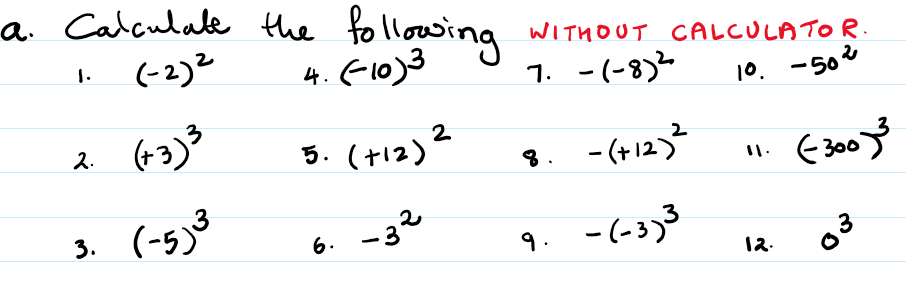 a. Calculate the following WITHOUT CALCULATOR.
1. (-2)² 4. (-10)³ 7. -(-8)² 10. -50²
2. (+3)³ 5. (+12)² 8. -(+12)² 11. (-300)³
3. (-5)³ 6. -3² 9. -(-3)³ 12. 0³